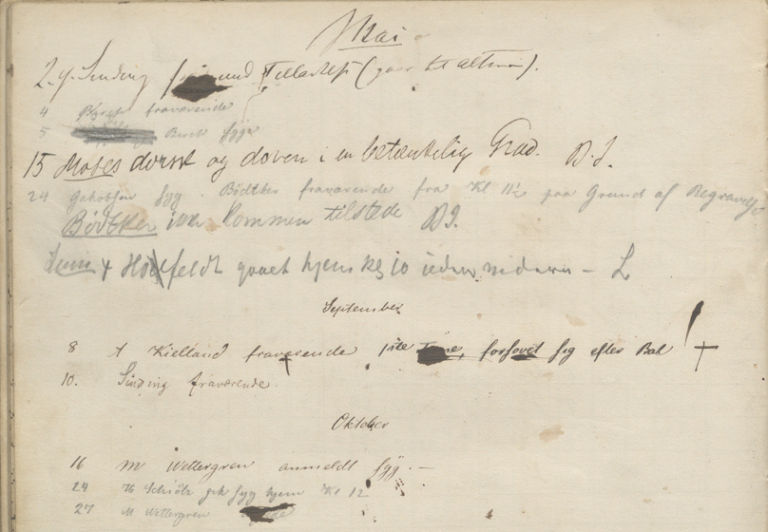 Mai
2. J. Sinding und Tellarkest (gaar til alteren).
4 fraværende
5 Buck syg
15 Moses dorsk og doven i en betænkelig Grad. B.J.
24 Jakobsen syg. Bödtker fraværende fra Kl 11½ paa Grund af Begravelse
Bödtker ikke kommen tilstede B.J.
Juni 4 Hoffeldt gaaet hjem kl 10 uden videre – L
September
8 A Kielland fraværende 1ste Time, forsovet sig efter Bal ! †
10. Sinding fraværende
Oktober
16 M Wettergren anmeldt syg. —
24 Th Schiötz gik syg hjem Kl 12
27 M Wettergren